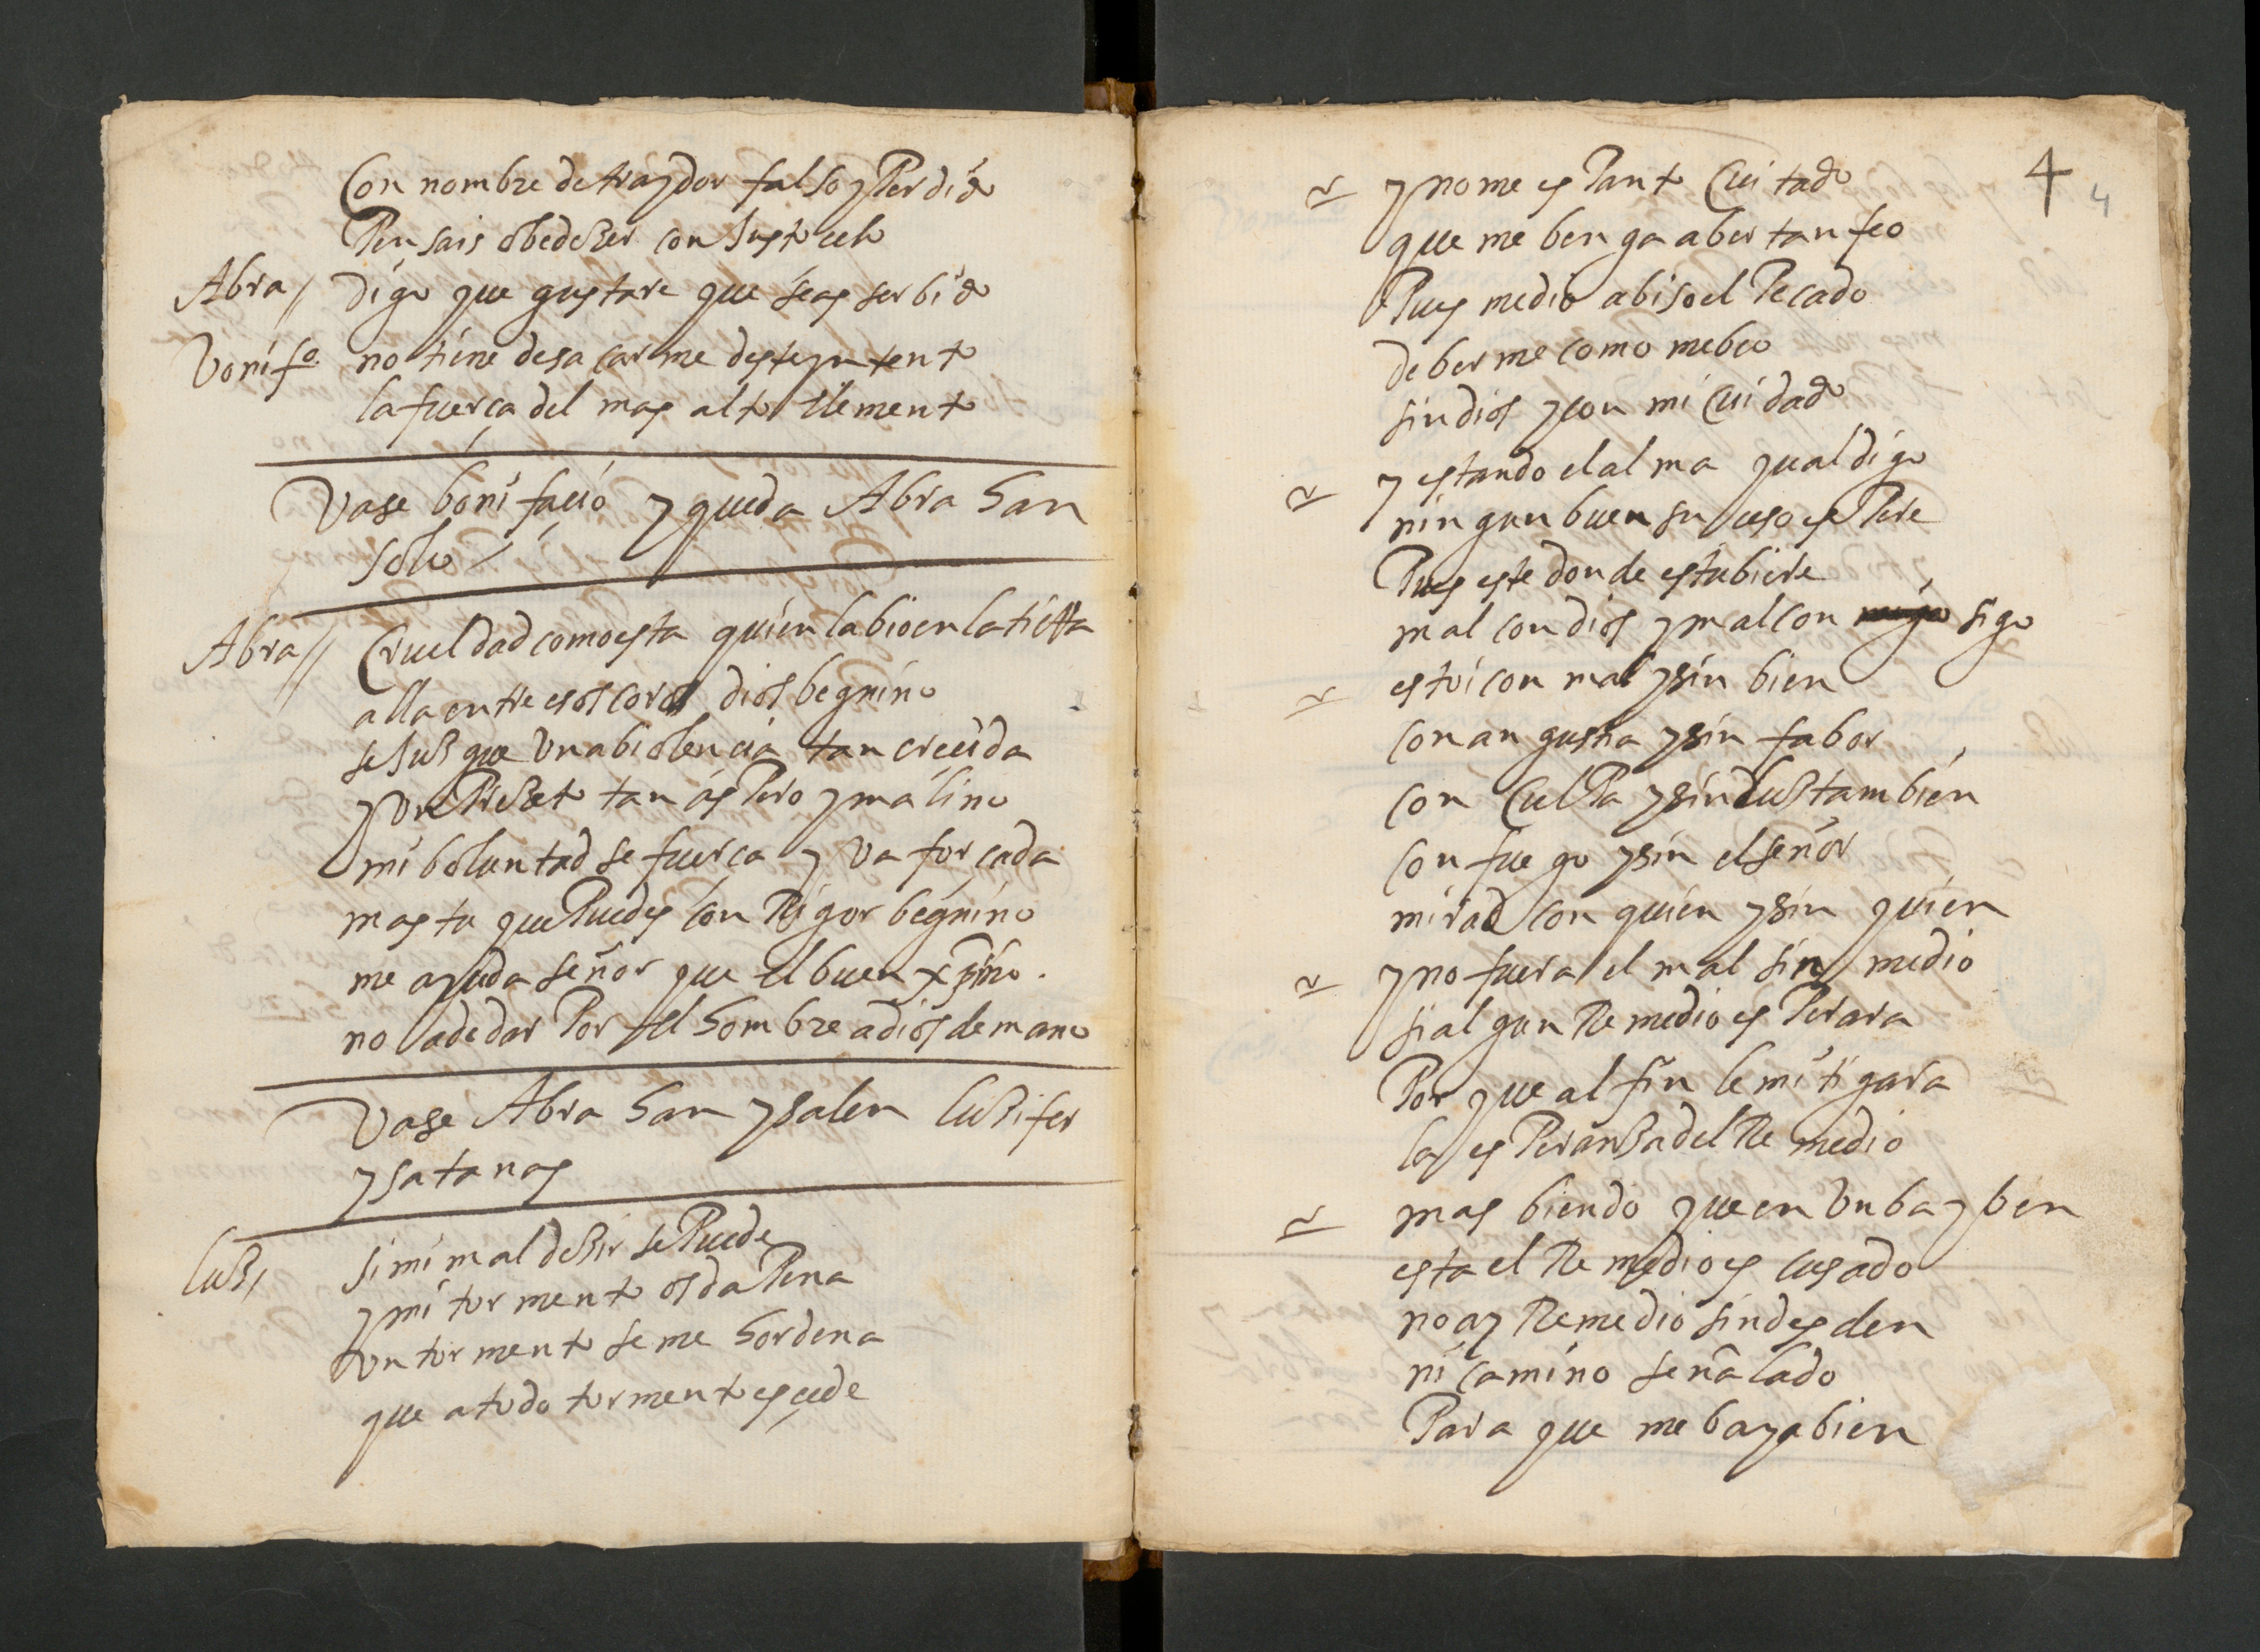 Con nombre de traydor falso y Perdido
Pensais obedeser con Justo celo
Abra // digo que gustare que seas serbido
Vonifo. no tiene de sacarme deste yntento
la fuerça del mas alto Elemento
Vase bonifacio y queda Abrahan
solo
Abra // Crueldad como esta quien la bio en la tierra
alla entre esos coros dios begnino
Jesus que Una biolencia tan crecida
y Un Preseto tan aspero y malino
mi boluntad se fuerça y va forçada
mas tu que Puedes con Rigor begnino
me ayuda señor que el buen xpino.
no a de dar Por el hombre a dios de mano
Vase Abrahan y salen lusifer
y satanas
lus/ si mi mal desir se Puede
y mi tormento os da Pena
Un tormento se me hordena
que a todo tormento escede
4 4
y no me espanto Cuitado
que me benga a ber tan feo
Pues me dio abiso el Pecado
de berme como me beo
sin dios y con mi Cuidado
y estando el alma qual digo
ningun buen suceso espere
Pues este donde estubiere
mal con dios y mal con sigo
estoi con mal y sin bien
con angustia y sin fabor
con Culpa y sin lus tambien
con fuego y sin el señor
mirad con quien y sin quien
y no fuera el mal sin medio
si algun Remedio esperara
Por que al fin le mitigara
la esperansa del Remedio
mas biendo que en Un bayben
esta el Remedio escusado
no ay Remedio sin desden
ni camino señalado
Para que me baya bien